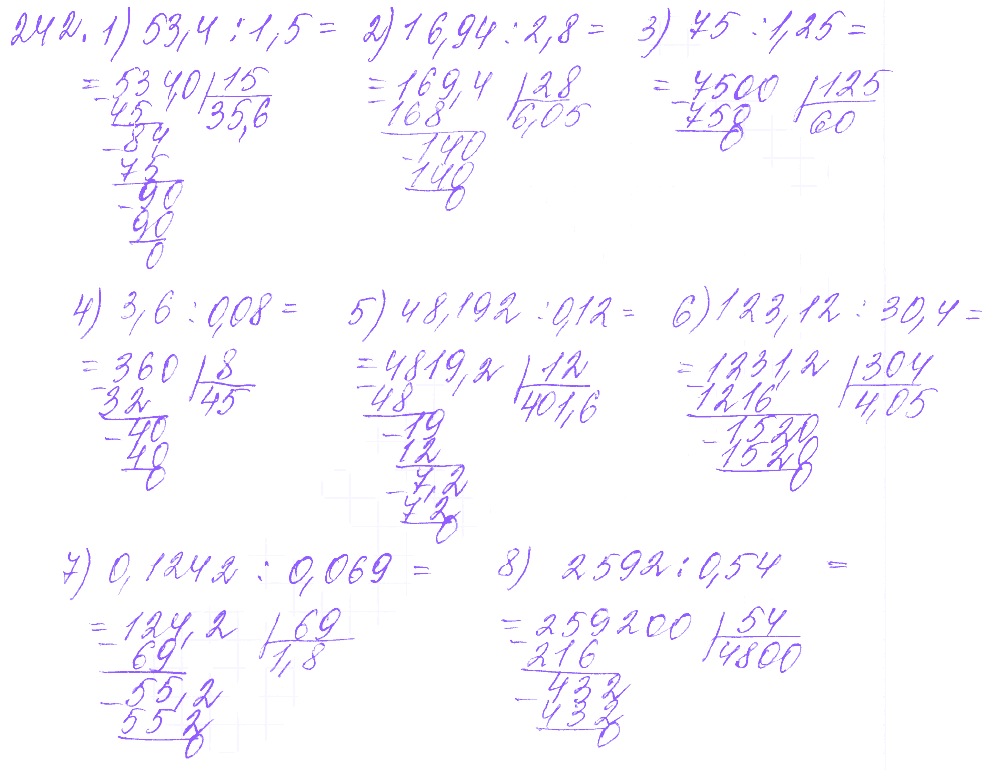 242. 1) 53,4 : 1,5 = 2) 16,94 : 2,8 = 3) 75 : 1,25 =
= 534,0 15 = 169,4 28 = 7500 125
- 45 35,6 - 168 6,05 - 750 60
- 84 - 140 0
75 140
- 90 0
90
0
4) 3,6 : 0,08 = 5) 48,192 : 0,12 = 6) 123,12 : 30,4 =
= 360 8 = 4819,2 12 = 1231,2 304
- 32 45 - 48 401,6 - 1216 4,05
- 40 - 19 - 1520
40 12 1520
0 - 7,2 0
72
0
7) 0,1242 : 0,069 = 8) 2592 : 0,54 =
= 124,2 69 = 259200 54
- 69 1,8 - 216 4800
- 55,2 - 432
552 432
0 0